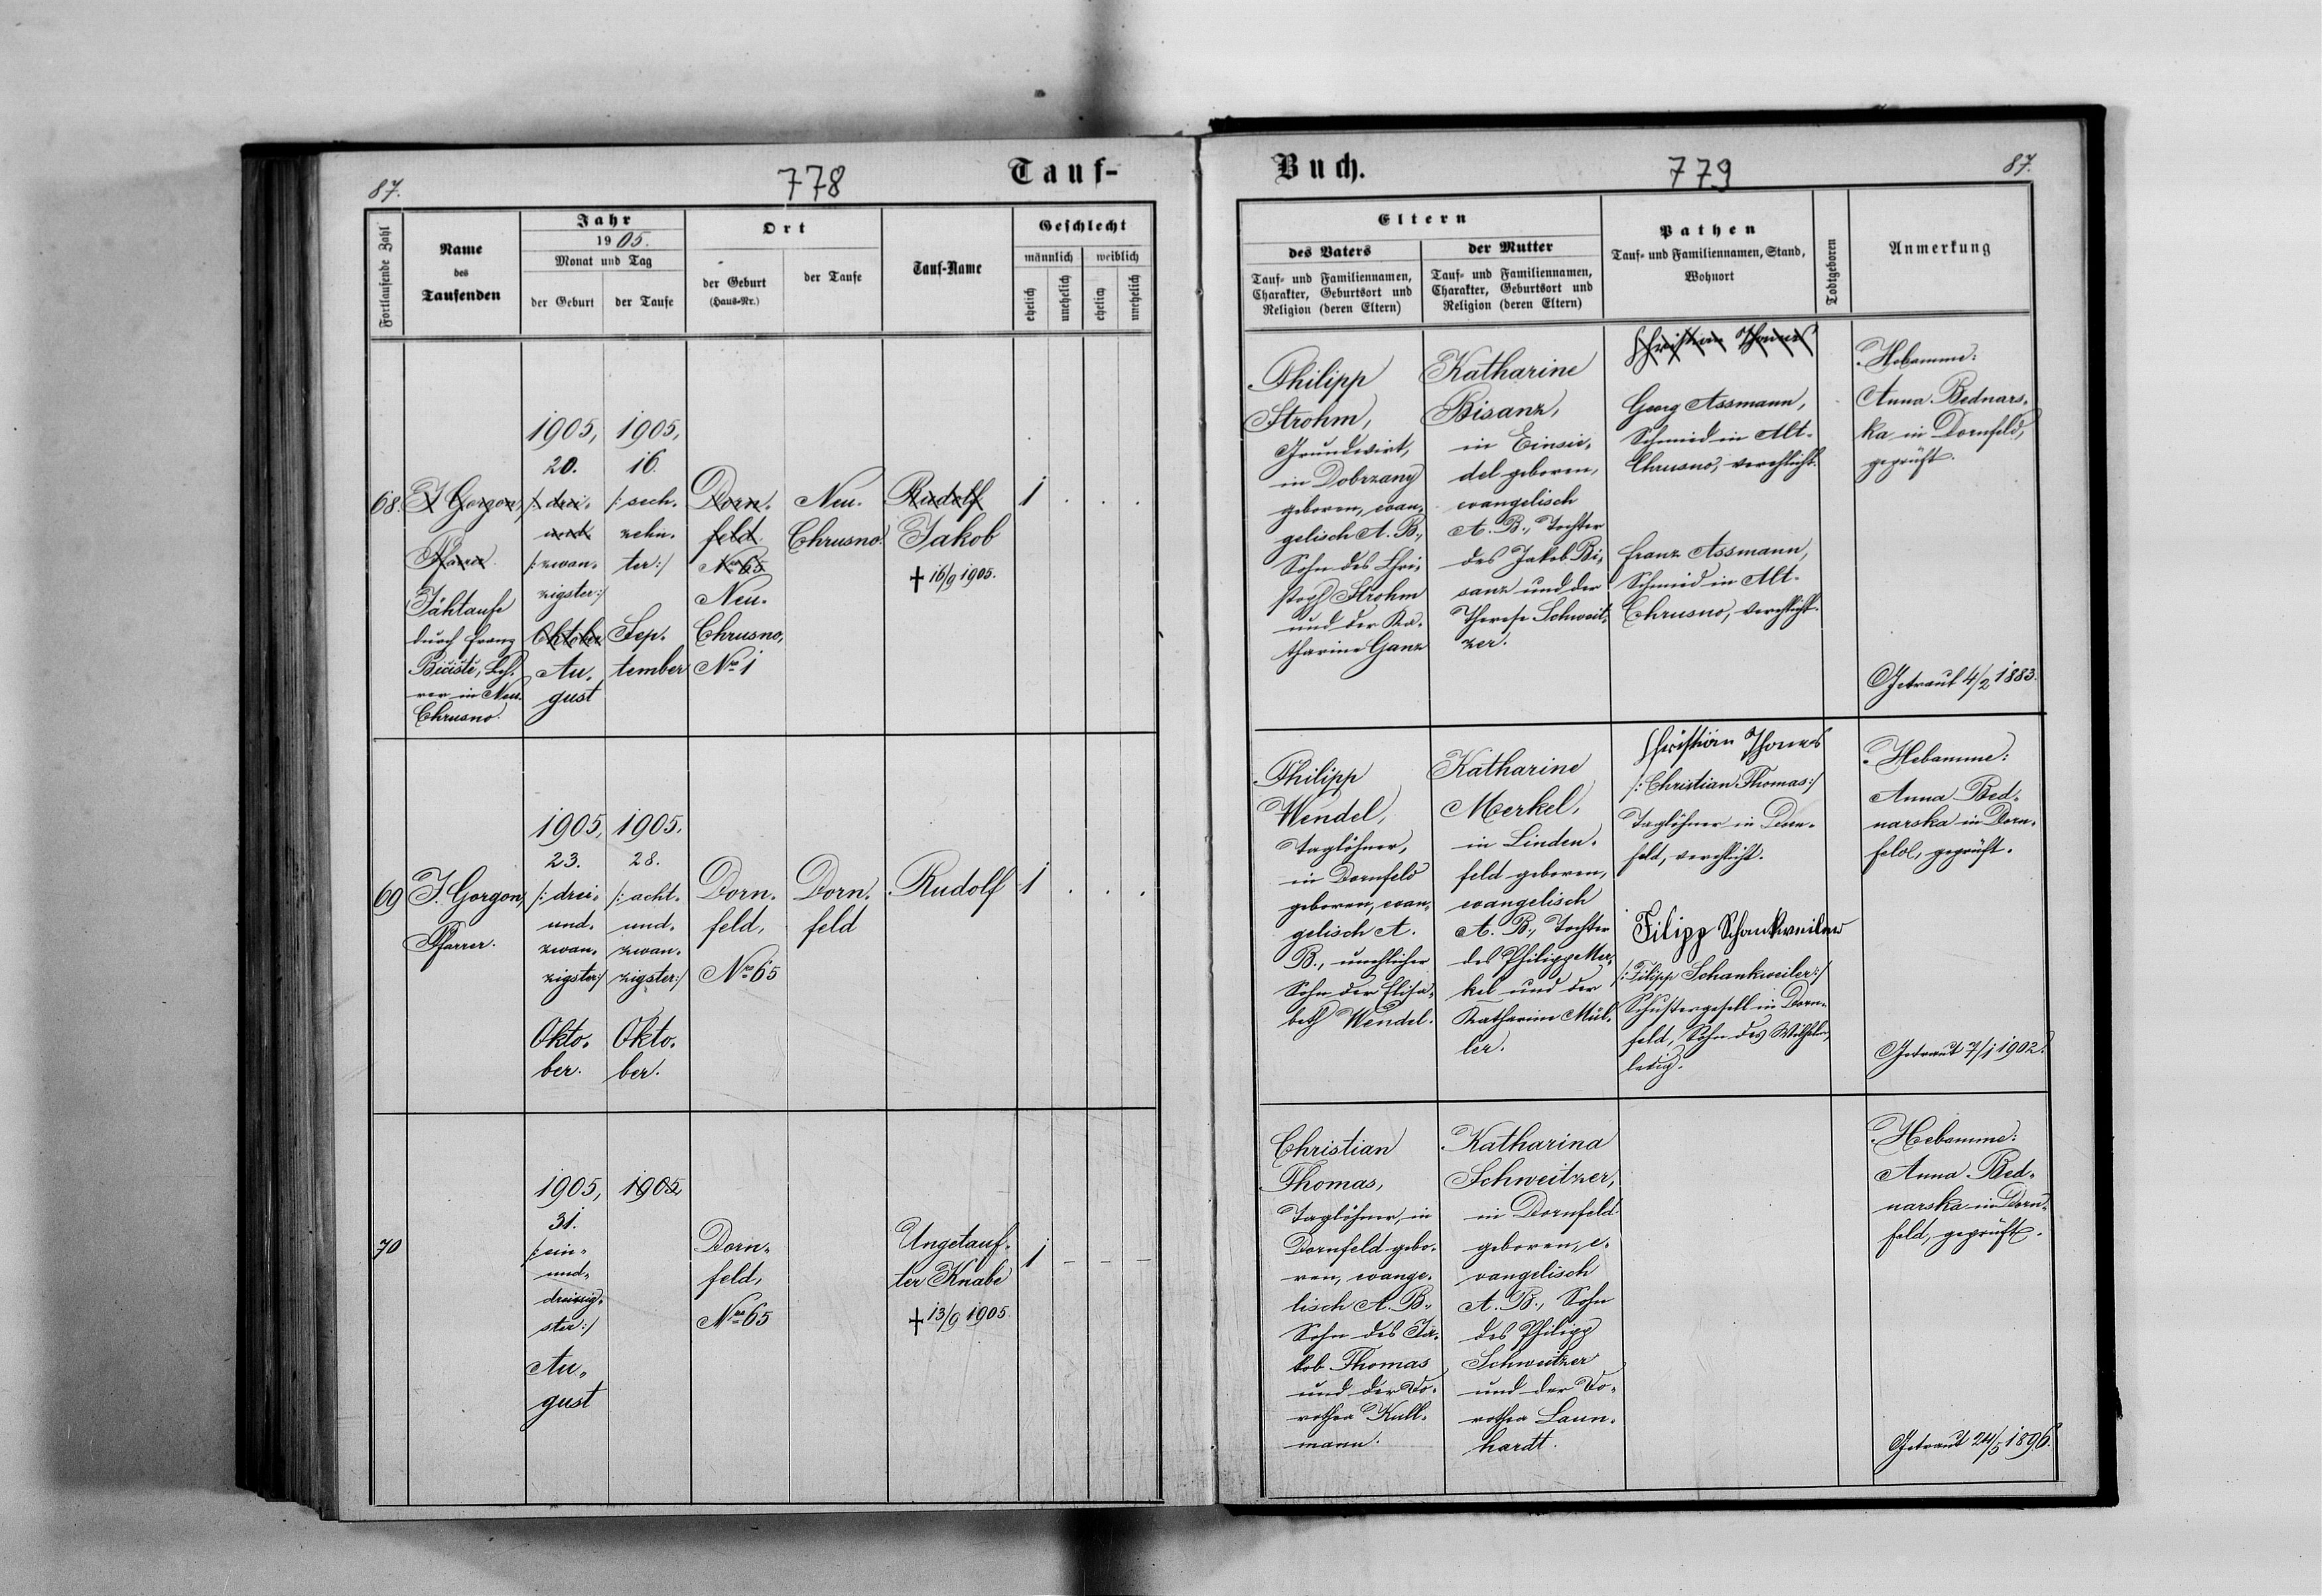 87.
778
Tauf-
Fortlaufende Zahl
Name
des
Taufenden
Jahr
1905.
Monat und Tag
der Geburt
der Taufe
Ort
der Geburt
(Haus-Nr.)
der Taufe
Tauf-Name
Geschlecht
männlich
weiblich
ehelich
unehelich
ehelich
unehelich
68.
J. Gorgon,
Pfarrer.
Jähtaufe
durch Franz
Leh-
rer in Neu-
Chrusno.
1905,
20.
/: drei-
und-
/: zwan-
zigster:/
Oktober
Au-
gust
1905,
16.
/: sech-
zehn-
ter:/
Sep-
tember
Dorn-
feld.
Nro 65
Neu-
Chrusno,
Nro 1
Neu-
Chrusno.
Rudolf
Jakob
† 16/9 1905.
1 . . .
69
J. Gorgon,
Pfarrer.
1905,
23.
/: drei-
und-
zwan-
zigster:/
Okto-
ber.
1905.
28.
/: acht-
und-
zwan-
zigster:/
Okto-
ber.
Dorn-
feld,
Nro 65
Dorn-
feld
Rudolf
1 . . .
70
1905,
31.
/: ein-
und-
dreissig-
ster:/
Au-
gust
1905
Dorn-
feld,
Nro 65
Ungetauf-
ter Knabe
† 13/9 1905.
1 - - -
Buch.
779
87.
Eltern
des Vaters
Tauf- und Familiennamen,
Charakter, Geburtsort und
Religion (deren Eltern)
der Mutter
Tauf- und Familiennamen,
Charakter, Geburtsort und
Religion (deren Eltern)
Pathen
Tauf- und Familiennamen, Stand,
Wohnort
Todtgeboren
Anmerkung
Philipp
Strohm,
Grundwirt,
in Dobrzany
geboren, evan-
gelisch A. B.,
Sohn des Chri-
stoph Strohm
und der Ka-
tharina Ganz
Katharine
Bisanz,
in Einsie-
del geboren,
evangelisch
A. B., Tochter
des Jakob Bi-
sanz und der
Therese Schweit-
zer.
Christian Thomas
Georg Assmann,
Schmied in Alt-
Chrusno, verehlicht.
Franz Assmann,
Schmied in Alt-
Chrusno, verehlicht.
Hebamme:
Anna Bednars-
ka in Dornfeld,
geprüft.
Getraut 4/2 1883.
Philipp
Wendel,
Taglöhner,
in Dornfeld
geboren, evan-
gelisch A.
B., unehlicher
Sohn der Elisa-
beth Wendel.
Katharine
Merkel,
in Linden-
feld geboren,
evangelisch
A. B., Tochter
des Philipp Mer-
kel und der
Katharine Mül-
ler.
Christian Thomas
/: Christian Thomas:/
Taglöhner in Dorn-
feld, verehlicht.
Filipp Schankweiler
/: Filipp Schankweiler:/
Schustergesell in Dorn-
feld, Sohn des Wilhelm,
ledig.
Hebamme:
Anna Bed-
narska in Dorn-
feld, geprüft.
Getraut 7/1 1902.
Christian
Thomas,
Taglöhner, in
Dornfeld gebo-
ren, evange-
lisch A. B.,
Sohn des Ja-
kob Thomas
und der Do-
rothea Kull-
mann.
Katharina
Schweitzer,
in Dornfeld
geboren, e-
vangelisch
A. B., Sohn
des Philipp
Schweitzer
und der Do-
rothea Laun-
hardt.
Hebamme:
Anna Bed-
narska in Dorn-
feld, geprüft.
Getraut 24/5 1896.